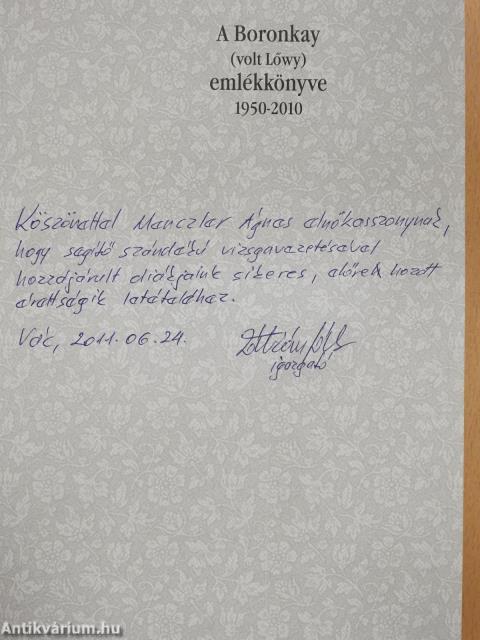 A Boronkay
(volt Lőwy)
emlékkönyve
1950-2010
Köszönettel Manczler Ágnes elnökasszonynak,
hogy segítő szándékú vizsgavezetésével
hozzájárult diákjaink sikeres, előre hozott
érettségik letételéhez.
Vác, 2011.06.24.
igazgató
Antikvárium.hu